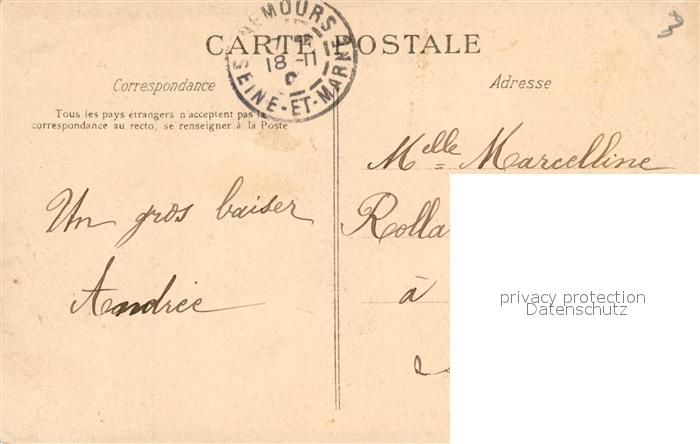 CARTE POSTALE
NEMOURS
18 -11
SEINE-ET-MARNE
Correspondance
Tous les pays étrangers n'acceptent pas la
correspondance au recto, se renseigner à la Poste
Un gros baiser
Andrée
Adresse
Melle Marcelline
Rolla
à
privacy protection
Datenschutz
3